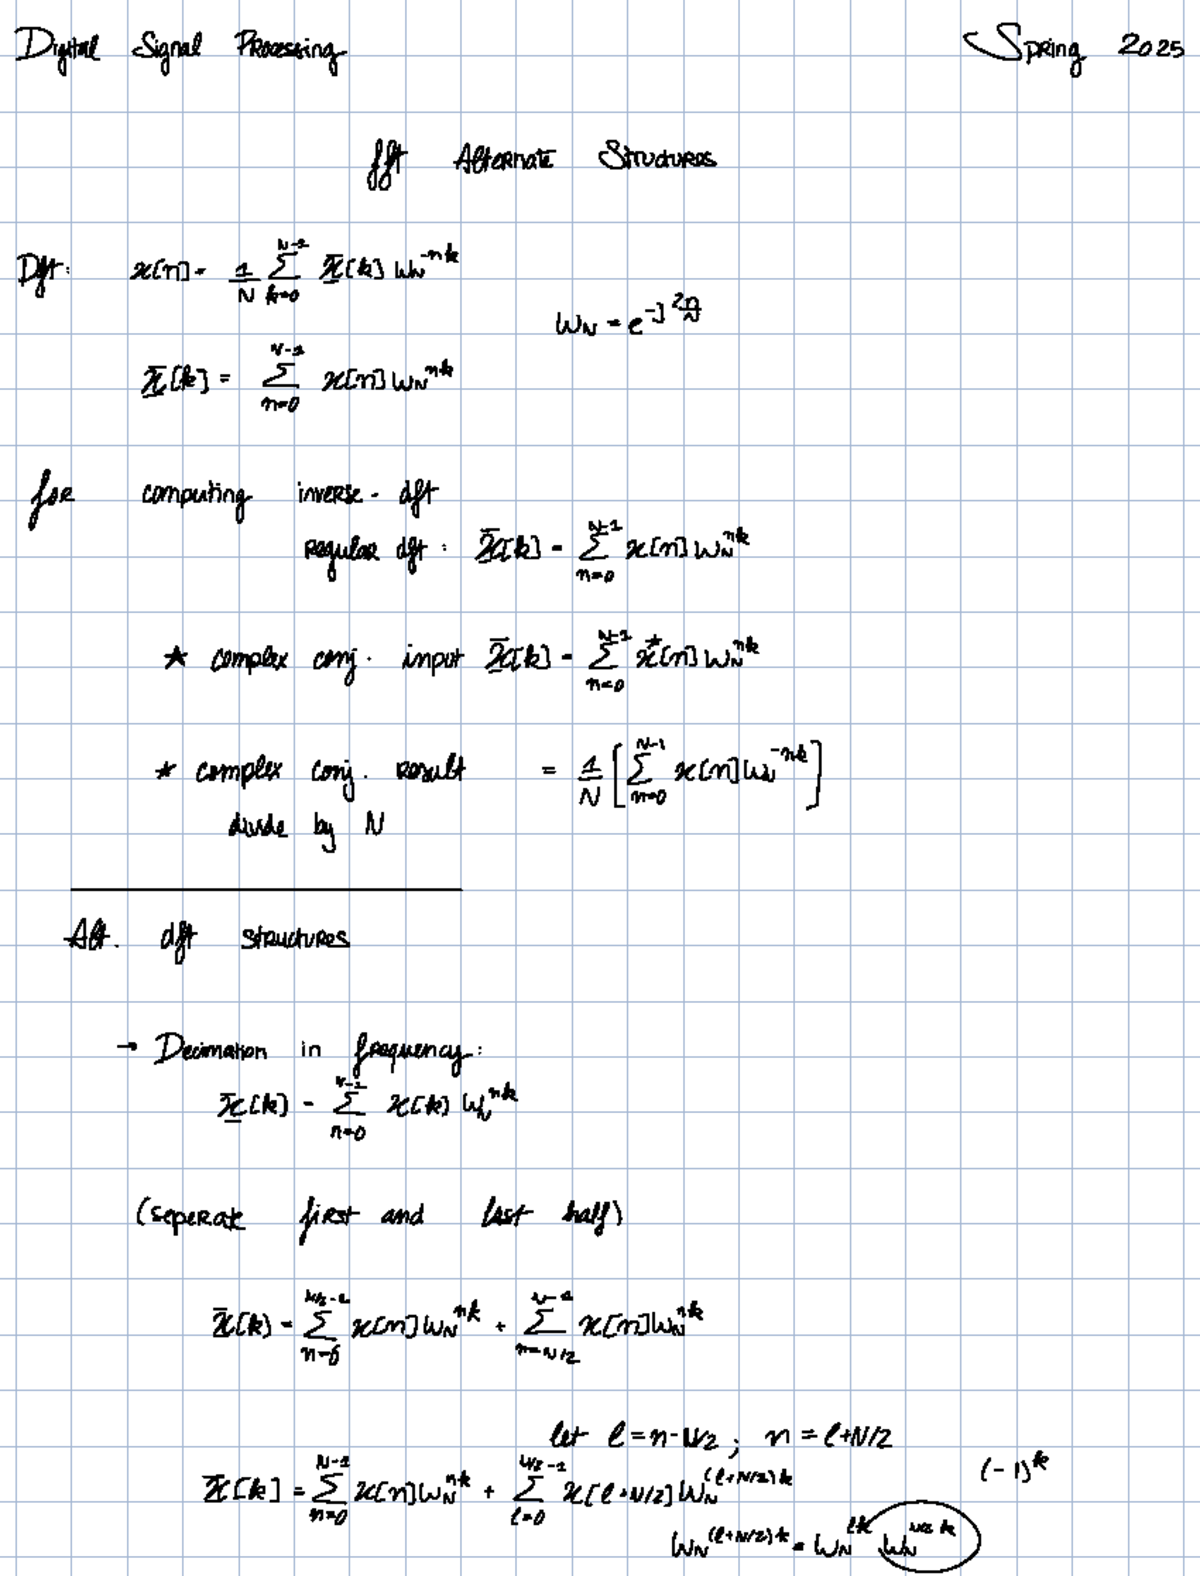 Digital Signal Processing Spring 2025
fft Alternate Structures
Dft: x[n] = 1/N Σ_{k=0}^{N-1} X[k] W_N^{-nk}
W_N = e^{-j 2π/N}
X[k] = Σ_{n=0}^{N-1} x[n] W_N^{nk}
for computing inverse - dft
regular dft: X[k] = Σ_{n=0}^{N-1} x[n] W_N^{nk}
★ complex conj. input X[k] = Σ_{n=0}^{N-1} x*[n] W_N^{nk}
★ complex conj. result = 1/N [Σ_{n=0}^{N-1} x[n] W_N^{-nk}]
divide by N
Alt. dft structures
→ Decimation in frequency:
X[k] = Σ_{n=0}^{N-1} x[k] W_N^{nk}
(seperate first and last half)
X[k] = Σ_{n=0}^{N/2-1} x[n] W_N^{nk} + Σ_{n=N/2}^{N-1} x[n] W_N^{nk}
let l = n-N/2 ; n = l+N/2
(-1)^k
X[k] = Σ_{n=0}^{N-1} x[n] W_N^{nk} + Σ_{l=0}^{N/2-1} x[l+N/2] W_N^{(l+N/2)k}
W_N^{(l+N/2)k} = W_N^{lk} W_N^{N/2 k}